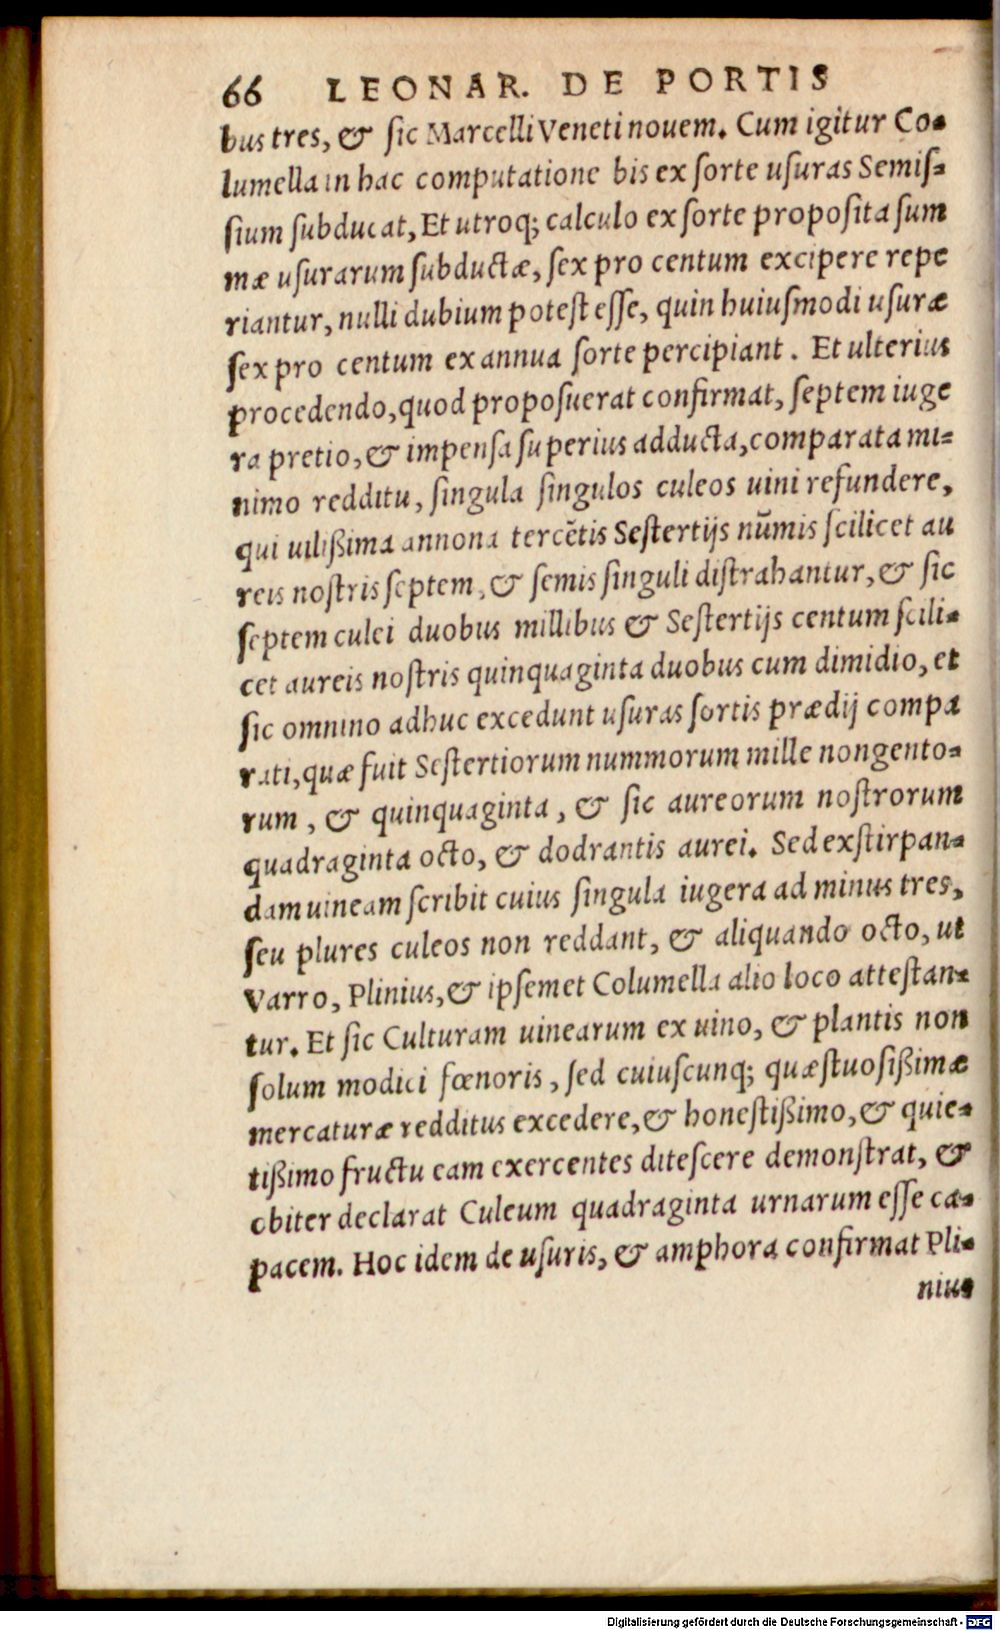 66 LEONAR. DE PORTIS
bus tres, & ſic Marcelli Veneti nouem. Cum igitur Co-
lumella in hac computatione bis ex ſorte uſuras Semiſ-
ſium ſubducat, Et utroq; calculo ex ſorte propoſita ſum
mæ uſurarum ſubductæ, ſex pro centum excipere repe
riantur, nulli dubium poteſt eſſe, quin huiuſmodi uſuræ
ſex pro centum ex annua ſorte percipiant. Et ulterius
procedendo, quod propoſuerat confirmat, ſeptem iuge
ra pretio, & impenſa ſuperius adducta, comparata mi-
nimo redditu, ſingula ſingulos culeos uini refundere,
qui uilißima annona tercẽtis Seſtertijs nũmis ſcilicet au
reis noſtris ſeptem, & ſemis ſinguli diſtrahantur, & ſic
ſeptem culei duobus millibus & Seſtertijs centum ſcili-
cet aureis noſtris quinquaginta duobus cum dimidio, et
ſic omnino adhuc excedunt uſuras ſortis prædij compa
rati, quæ fuit Seſtertiorum nummorum mille nongento-
rum, & quinquaginta, & ſic aureorum noſtrorum
quadraginta octo, & dodrantis aurei. Sed exſtirpan-
dam uineam ſcribit cuius ſingula iugera ad minus tres,
ſeu plures culeos non reddant, & aliquando octo, ut
Varro, Plinius, & ipſemet Columella alio loco atteſtan-
tur. Et ſic Culturam uinearum ex uino, & plantis non
ſolum modici fœnoris, ſed cuiuſcunq; quæſtuoſißimæ
mercaturæ redditus excedere, & honeſtißimo, & quie-
tißimo fructu eam exercentes diteſcere demonſtrat, &
obiter declarat Culeum quadraginta urnarum eſſe ca-
pacem. Hoc idem de uſuris, & amphora confirmat Pli-
nius
Digitalisierung gefördert durch die Deutsche Forschungsgemeinschaft - DFG